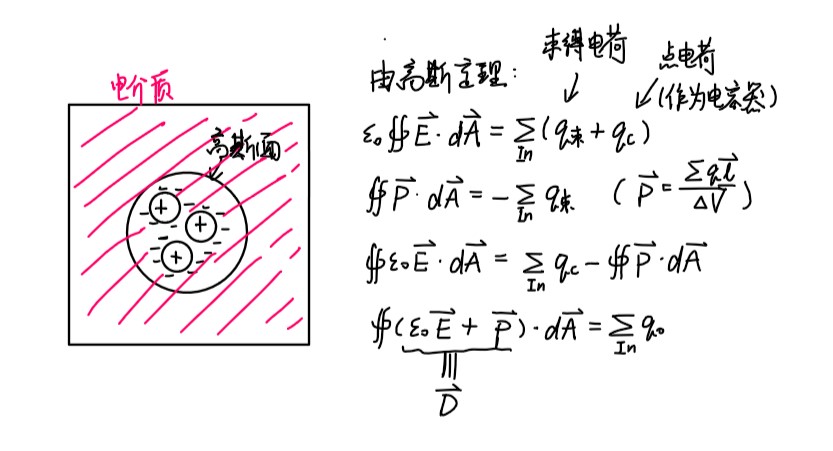 电介质
高斯面
由高斯定理：
束缚电荷
点电荷
(作为电容器)
ε₀∯E⃗·dA⃗ = Σ_In (q束 + q_c)
∯P⃗·dA⃗ = -Σ_In q束 (P⃗ = Σql⃗/ΔV)
∯ε₀E⃗·dA⃗ = Σ_In q_c - ∯P⃗·dA⃗
∯(ε₀E⃗ + P⃗)·dA⃗ = Σ_In q₀
D⃗